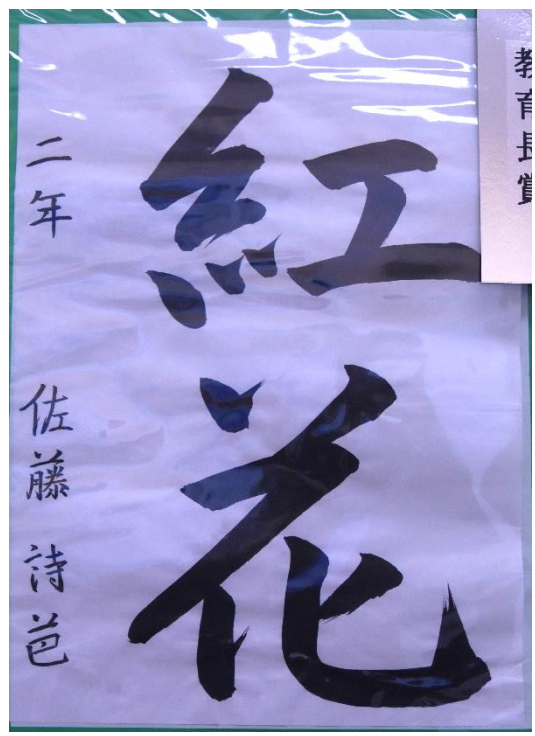 教育長賞
紅花
二年 佐藤 詩芭